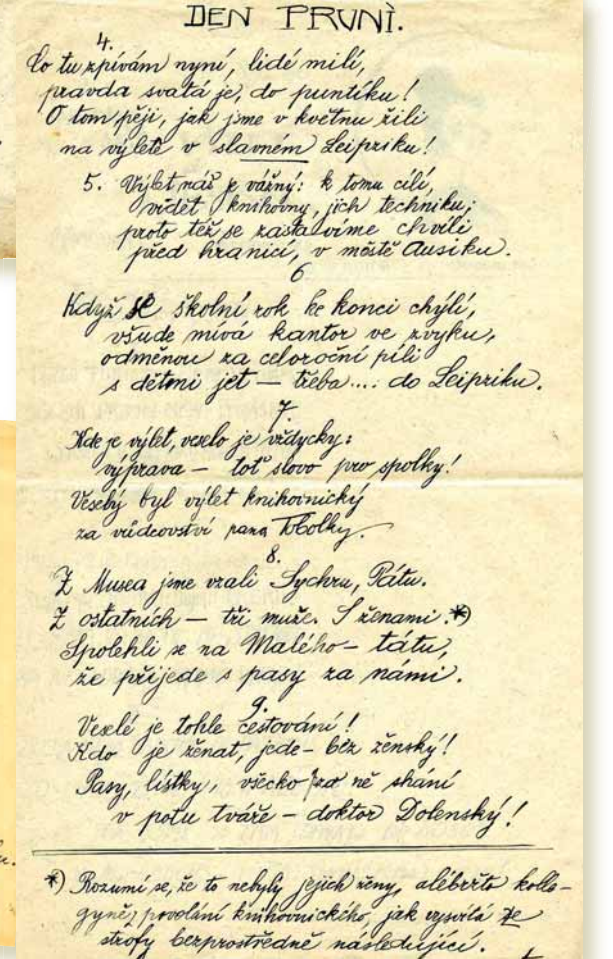 DEN PRVNÍ.
4.
Co tu zpívám nyní, lidé milí,
pravda svatá je, do puntíku!
O tom pěji, jak jsme v květnu žili
na výletě v slavném Leipziku!
5. Výlet náš je vážný: k tomu cílí,
vidět knihovny, jich techniku;
proto též se zastavíme chvíli
před hranicí, v městě Ausiku.
6
Když se školní rok ke konci chýlí,
všude mívá kantor ve zvyku,
odměnou za celoroční píli
s dětmi jet — třeba...: do Leipziku.
7.
Kde je výlet, veselo je vždycky:
výprava — toť slovo pro spolky!
Veselý byl výlet knihovnický
za vůdcovství pana Tobolky.
8.
Z Musea jsme vzali Sychru, Pátu.
Z ostatních — tři muže. S ženami.*)
Spolehli se na Malého - tátu,
že přijede s pasy za námi.
9.
Veselé je tohle cestování!
Kdo je ženat, jede - bez ženský!
Pasy, lístky, všecko za ně shání
v potu tváře - doktor Dolenský!
*) Rozumí se, že to nebyly jejich ženy, alébržto kolle-
gyně, povolání knihovnického, jak vysvítá ze
strofy bezprostředně následující.